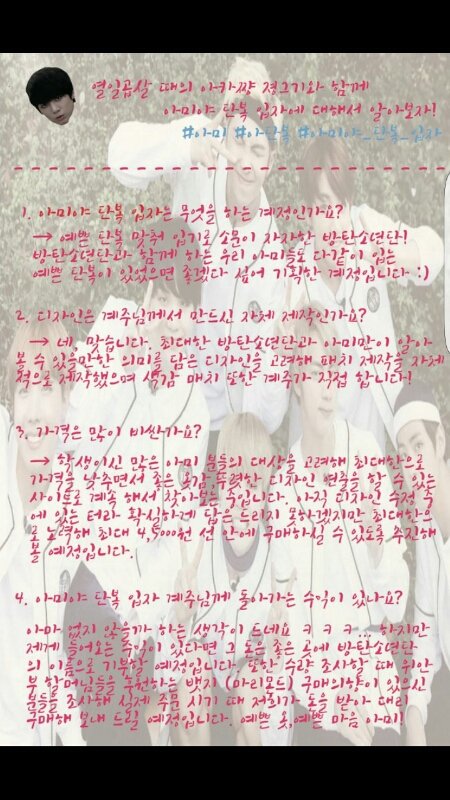 열일곱살 때의 아카쨩 졍그기와 함께
아미야 단복 입자에 대해서 알아보자!
#아미 #아단복 #아미야_단복_입자
1. 아미야 단복 입자는 무엇을 하는 계정인가요?
→ 예쁜 단복 맞춰 입기로 소문이 자자한 방탄소년단!
방탄소년단과 함께 하는 우리 아미들도 다같이 입는
예쁜 단복이 있었으면 좋겠다 싶어 기획한 계정입니다 :)
2. 디자인은 계주님께서 만드신 자체 제작인가요?
→ 네, 맞습니다. 최대한 방탄소년단과 아미만이 알아
볼 수 있을만한 의미를 담은 디자인을 고려해 패치 제작을 자체
적으로 제작했으며 색감 매치 또한 계주가 직접 합니다!
3. 가격은 많이 비싼가요?
→ 학생이신 많은 아미 분들의 대상을 고려해 최대한으로
가격을 낮추면서 좋은 옷감, 뚜렷한 디자인 변축을 할 수 있는
사이트로 계속 해서 찾아보는 중입니다. 아직 디자인 수정 중
에 있는 터라 확실하게 답은 드리지 못하겠지만 최대한으
로 노력해 최대 4,5000원 선 안에 구매하실 수 있도록 추진해
볼 예정입니다.
4. 아미야 단복 입자 계주님께 돌아가는 수익이 있나요?
아마 없지 않을까 하는 생각이 드네요 ㅋ ㅋ ㅋ... 하지만
제게 들어오는 수익이 있다면 그 돈은 좋은 곳에 방탄소년단
의 이름으로 기부할 예정입니다. 또한 수량 조사할 때 위안
부 할머님들을 후원하는 뱃지 (마리몬드) 구매의향이 있으신
분들을 조사해 실제 주문 시기 때 저희가 돈을 받아 대리
구매해 보내 드릴 예정입니다. 예쁜 옷, 예쁜 마음 아미!